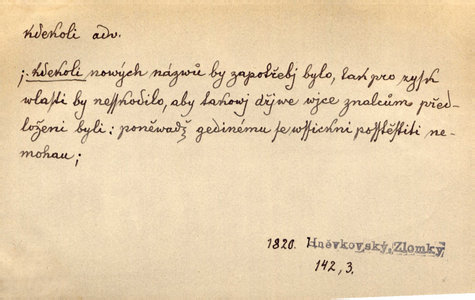 kdekoli adv.
; kdekoli nových názwů by zapotřebj bylo, tak pro zysk
wlasti by nesskodilo, aby takowj dřjwe wjce znalcům před-
loženi byli: poněwadž gedinému se wssickni posstěstiti ne-
mohau;
1820. Hněvkovský, Zlomky
142, 3.